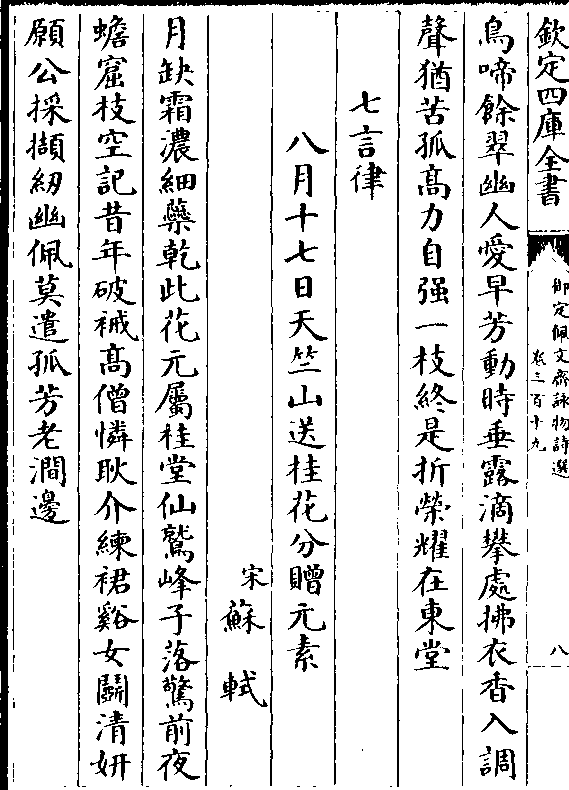 欽定四庫全書
御定佩文齋詠物詩選
卷三百十九
八
鳥啼餘翠幽人愛早芳動時垂露滴攀處拂衣香入調
聲猶苦孤高力自强一枝終是折榮耀在東堂
七言律
八月十七日天竺山送桂花分贈元素
宋蘇軾
月缺霜濃細蘂乾此花元屬桂堂仙鷲峰子落驚前夜
蟾窟枝空記昔年破裓高僧憐耿介練裙谿女鬭清妍
願公採擷紉幽佩莫遣孤芳老澗邊